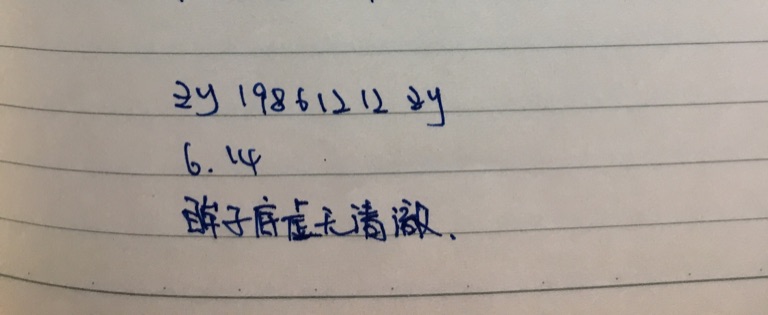 zy 19861212 zy
6.14
眸子底虚无清澈.